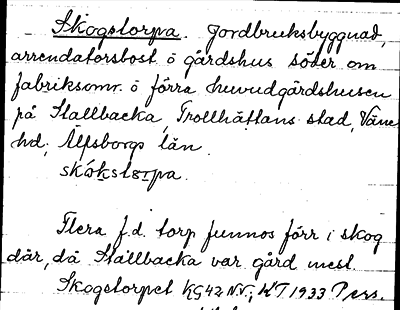 Skogstorpa. Jordbruksbyggnad,
arrendatorsbost. o gårdshus söder om
fabriksomr. o förra huvudgårdshusen
på Stallbacka, Trollhättans stad, Väne
hd; Älfsborgs län.
skókstorpa.
Flera f.d. torp funnos förr i skog
där, då Stallbacka var gård mest.
Skogstorpet KG42 N.V.; KT 1933 Pers.